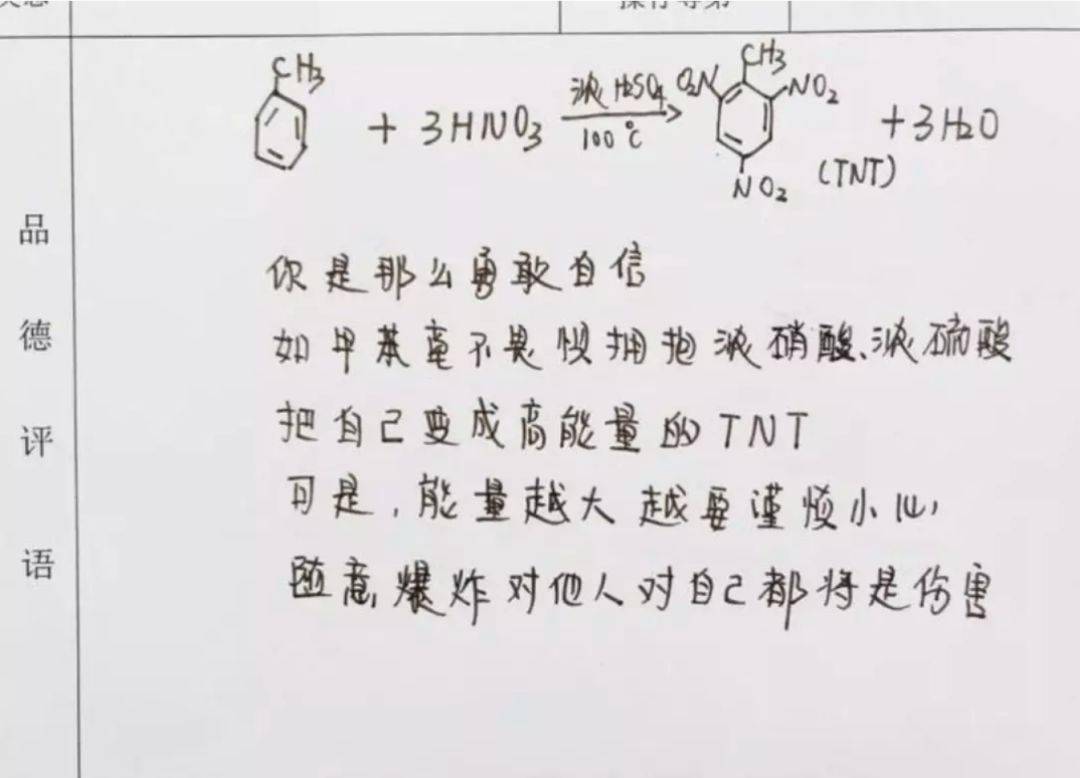 操行等第
CH₃
+ 3HNO₃ 浓H₂SO₄ 100℃ → O₂N CH₃ NO₂ NO₂ (TNT) + 3H₂O
品德评语
你是那么勇敢自信
如甲苯毫不畏惧拥抱浓硝酸、浓硫酸
把自己变成高能量的TNT
可是,能量越大越要谨慎小心,
随意爆炸对他人对自己都将是伤害